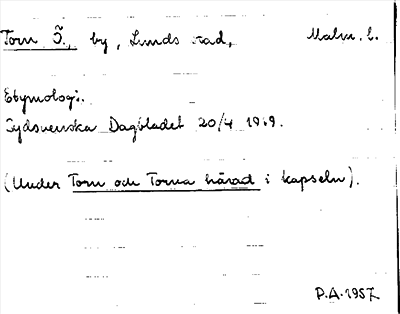 Torn Ö., by, Lunds stad, Malm. l.
Etymologi.
Sydsvenska Dagbladet 20/4 1919.
(Under Torn och Torna härad i kapseln).
P.A. 1957